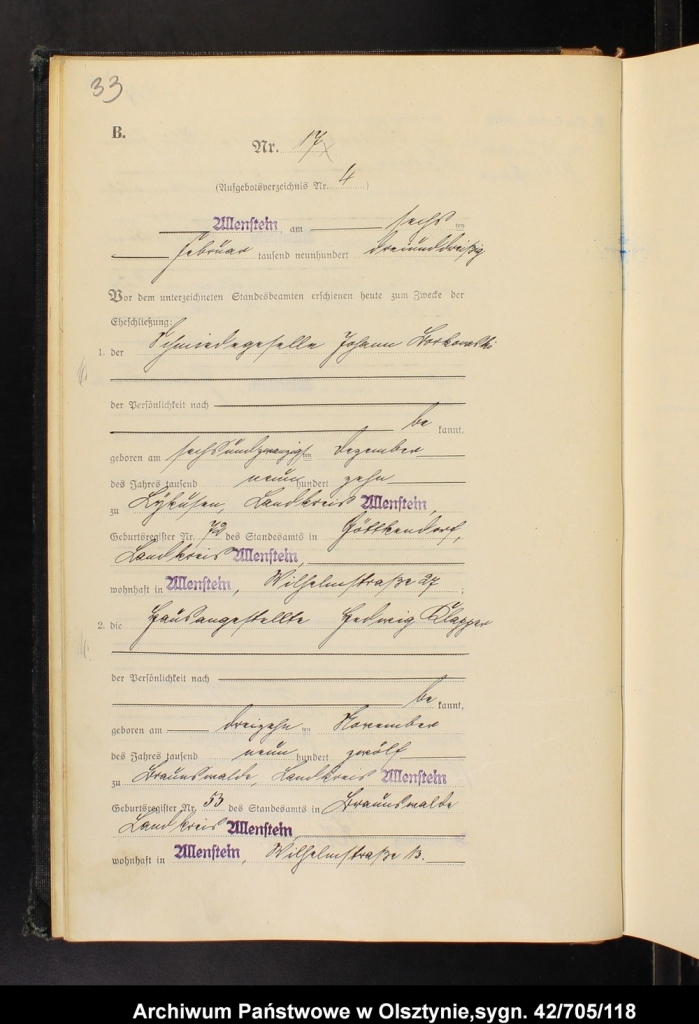 33
B.
Nr. 17
(Aufgebotsverzeichnis Nr. 4)
Allenstein, am sechsten
Februar tausend neunhundert dreiunddreißig
Vor dem unterzeichneten Standesbeamten erschienen heute zum Zwecke der
Eheschließung:
1. der Schmiedegeselle Johann Borkowski
der Persönlichkeit nach
be kannt,
geboren am sechsundzwanzigsten Dezember
des Jahres tausend neun hundert zehn
zu Lykusen, Landkreis Allenstein,
Geburtsregister Nr. 72 des Standesamts in Göttkendorf,
Landkreis Allenstein,
wohnhaft in Allenstein, Wilhelmstraße 27;
2. die Hausangestellte Hedwig Klapper
der Persönlichkeit nach
be kannt,
geboren am dreizehnten November
des Jahres tausend neun hundert zwölf
zu Braunswalde, Landkreis Allenstein
Geburtsregister Nr. 53 des Standesamts in Braunswalde
Landkreis Allenstein,
wohnhaft in Allenstein, Wilhelmstraße 13.
Archiwum Państwowe w Olsztynie,sygn. 42/705/118